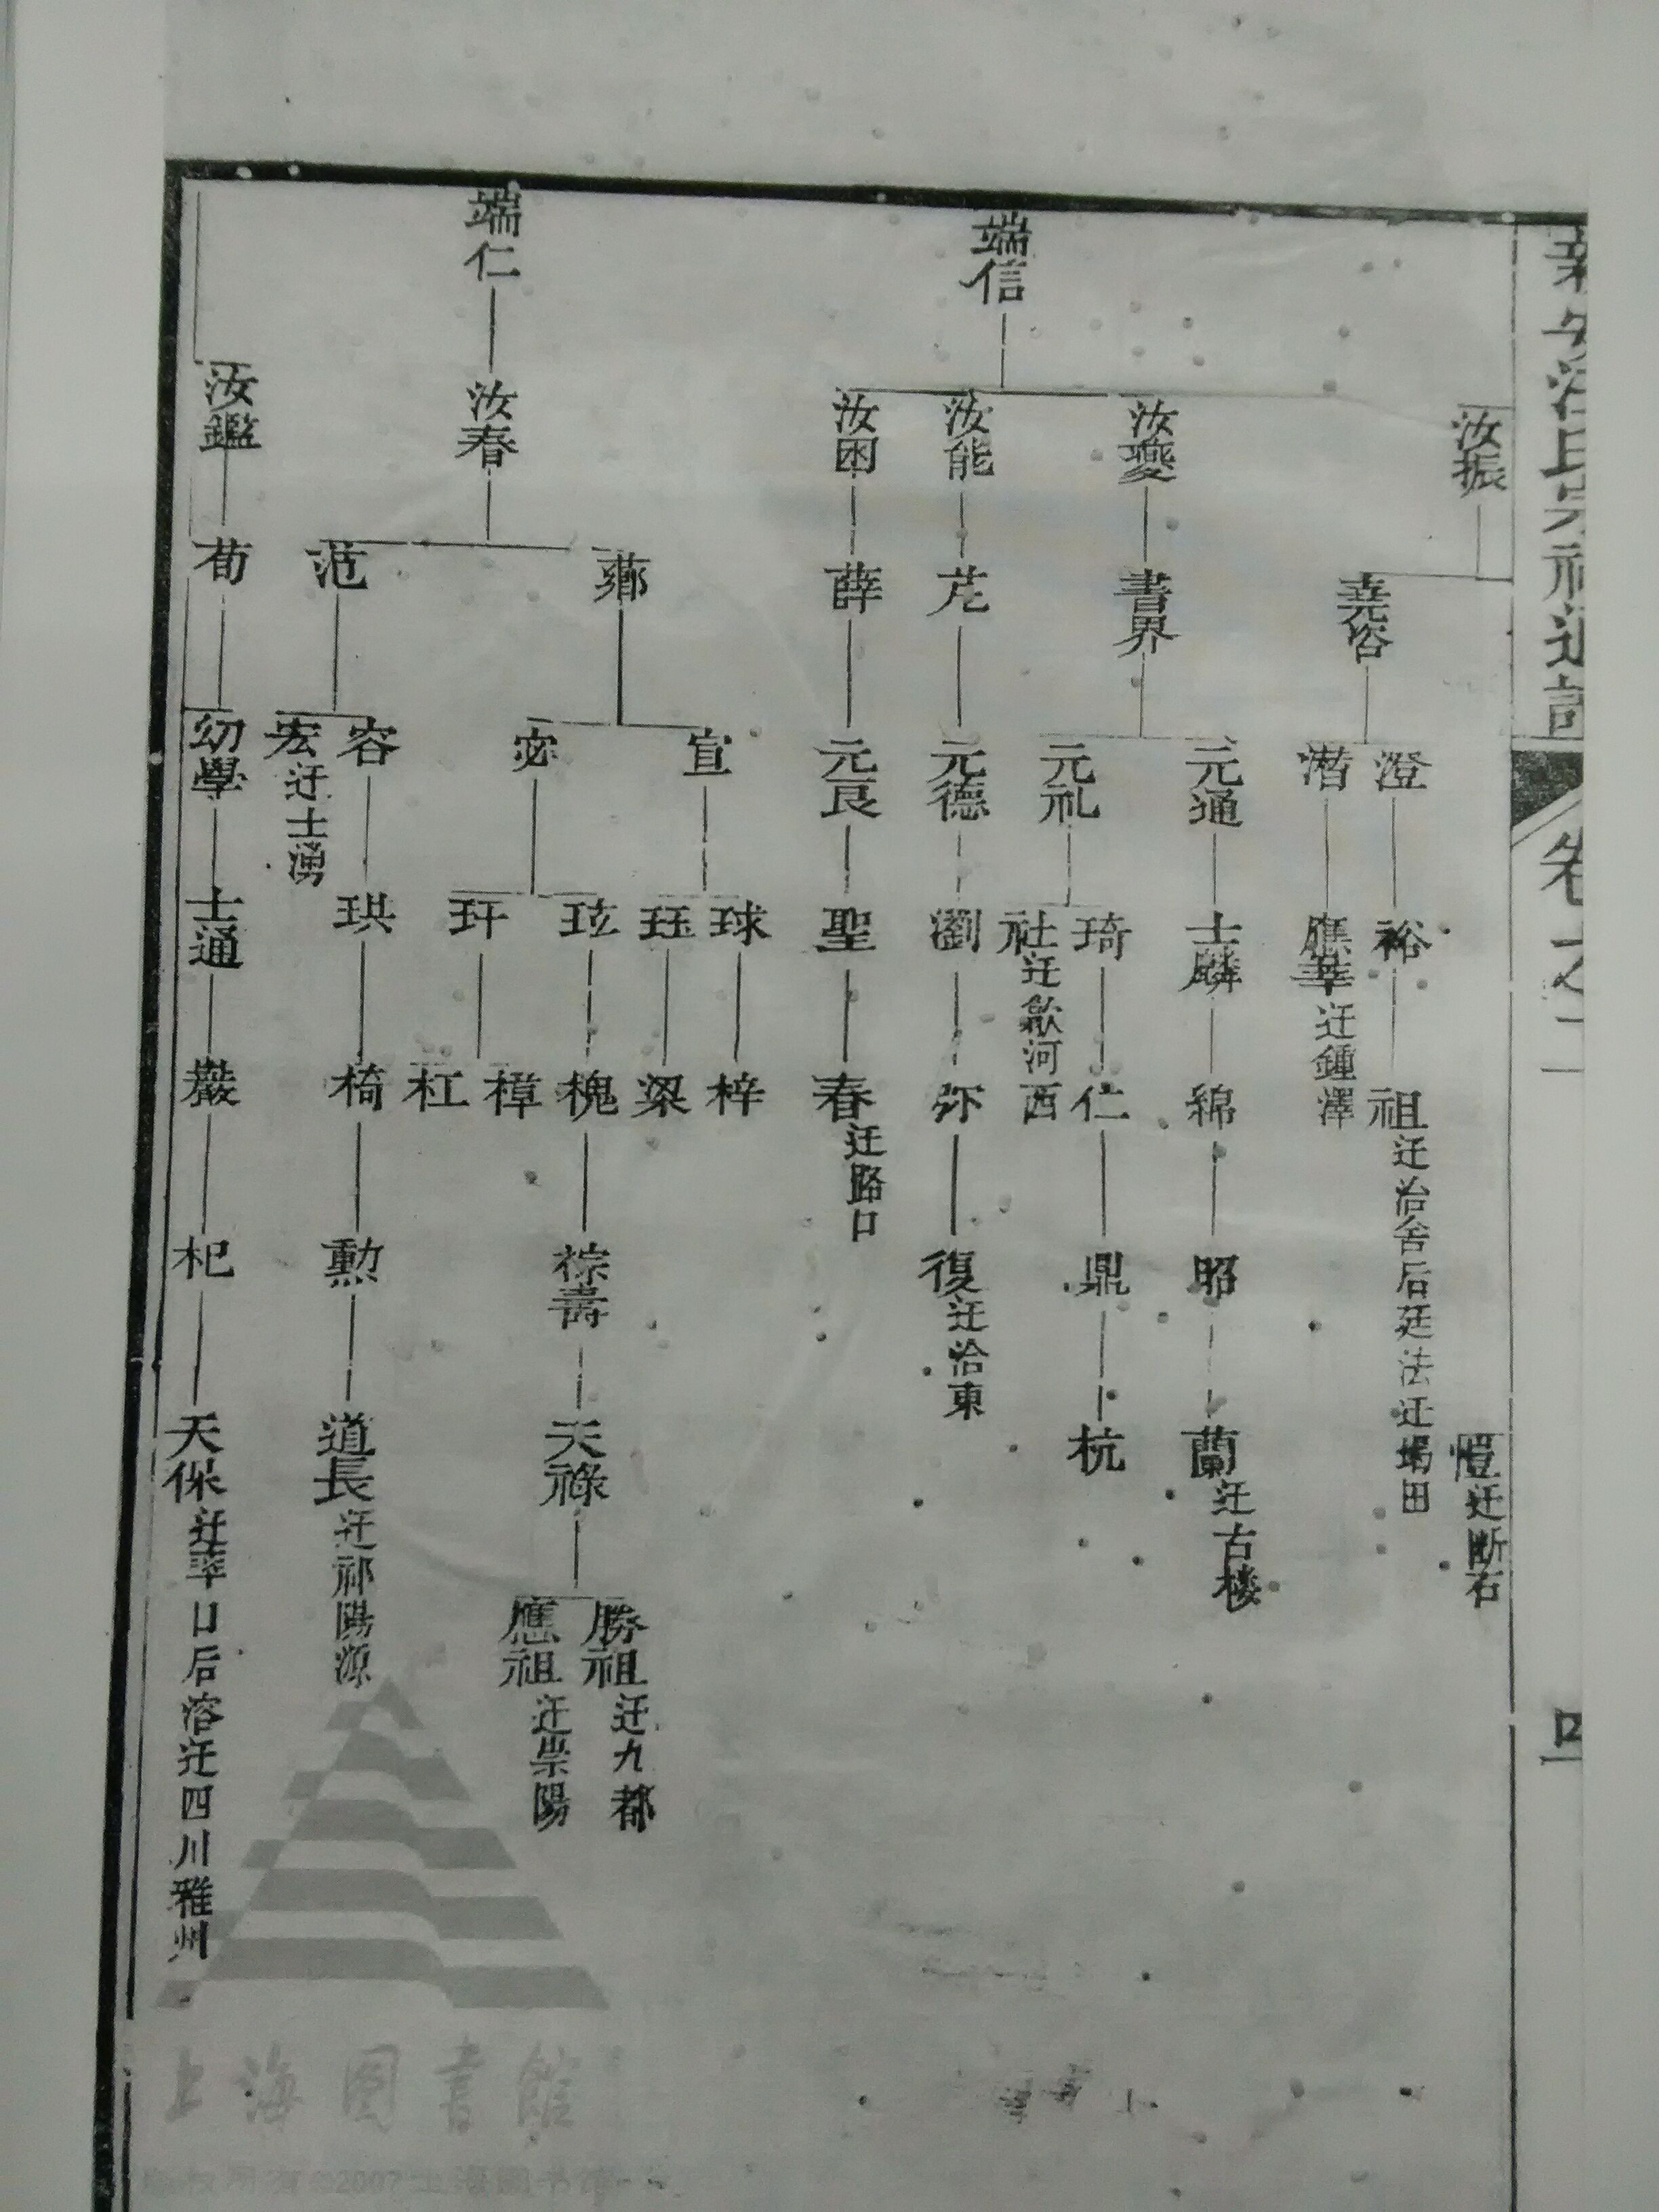 卷之二
四
汝振
堯咨
澄
裕
祖迁治舍后廷法迁塌田
潜
應華迁鍾澤
愷迁断石
端信
汝夔
書界
元通
士麟
綿
昭
蘭迁古楼
元礼
琦
仁
鼎
杭
社迁歙河西
汝能
芑
元德
劉
弥
復迁洽東
汝困
薛
元良
聖
春迁路口
端仁
汝春
薌
宣
球
梓
珏
梁
宓
玹
槐
棕壽
天祿
勝祖迁九都
應祖迁崇陽
玕
樟
杠
范
容
珙
椅
勲
道長迁祁陽源
宏迁士湧
汝鑑
荀
幼學
士通
巖
杞
天保迁率口后溶迁四川雅州
上海圖書館